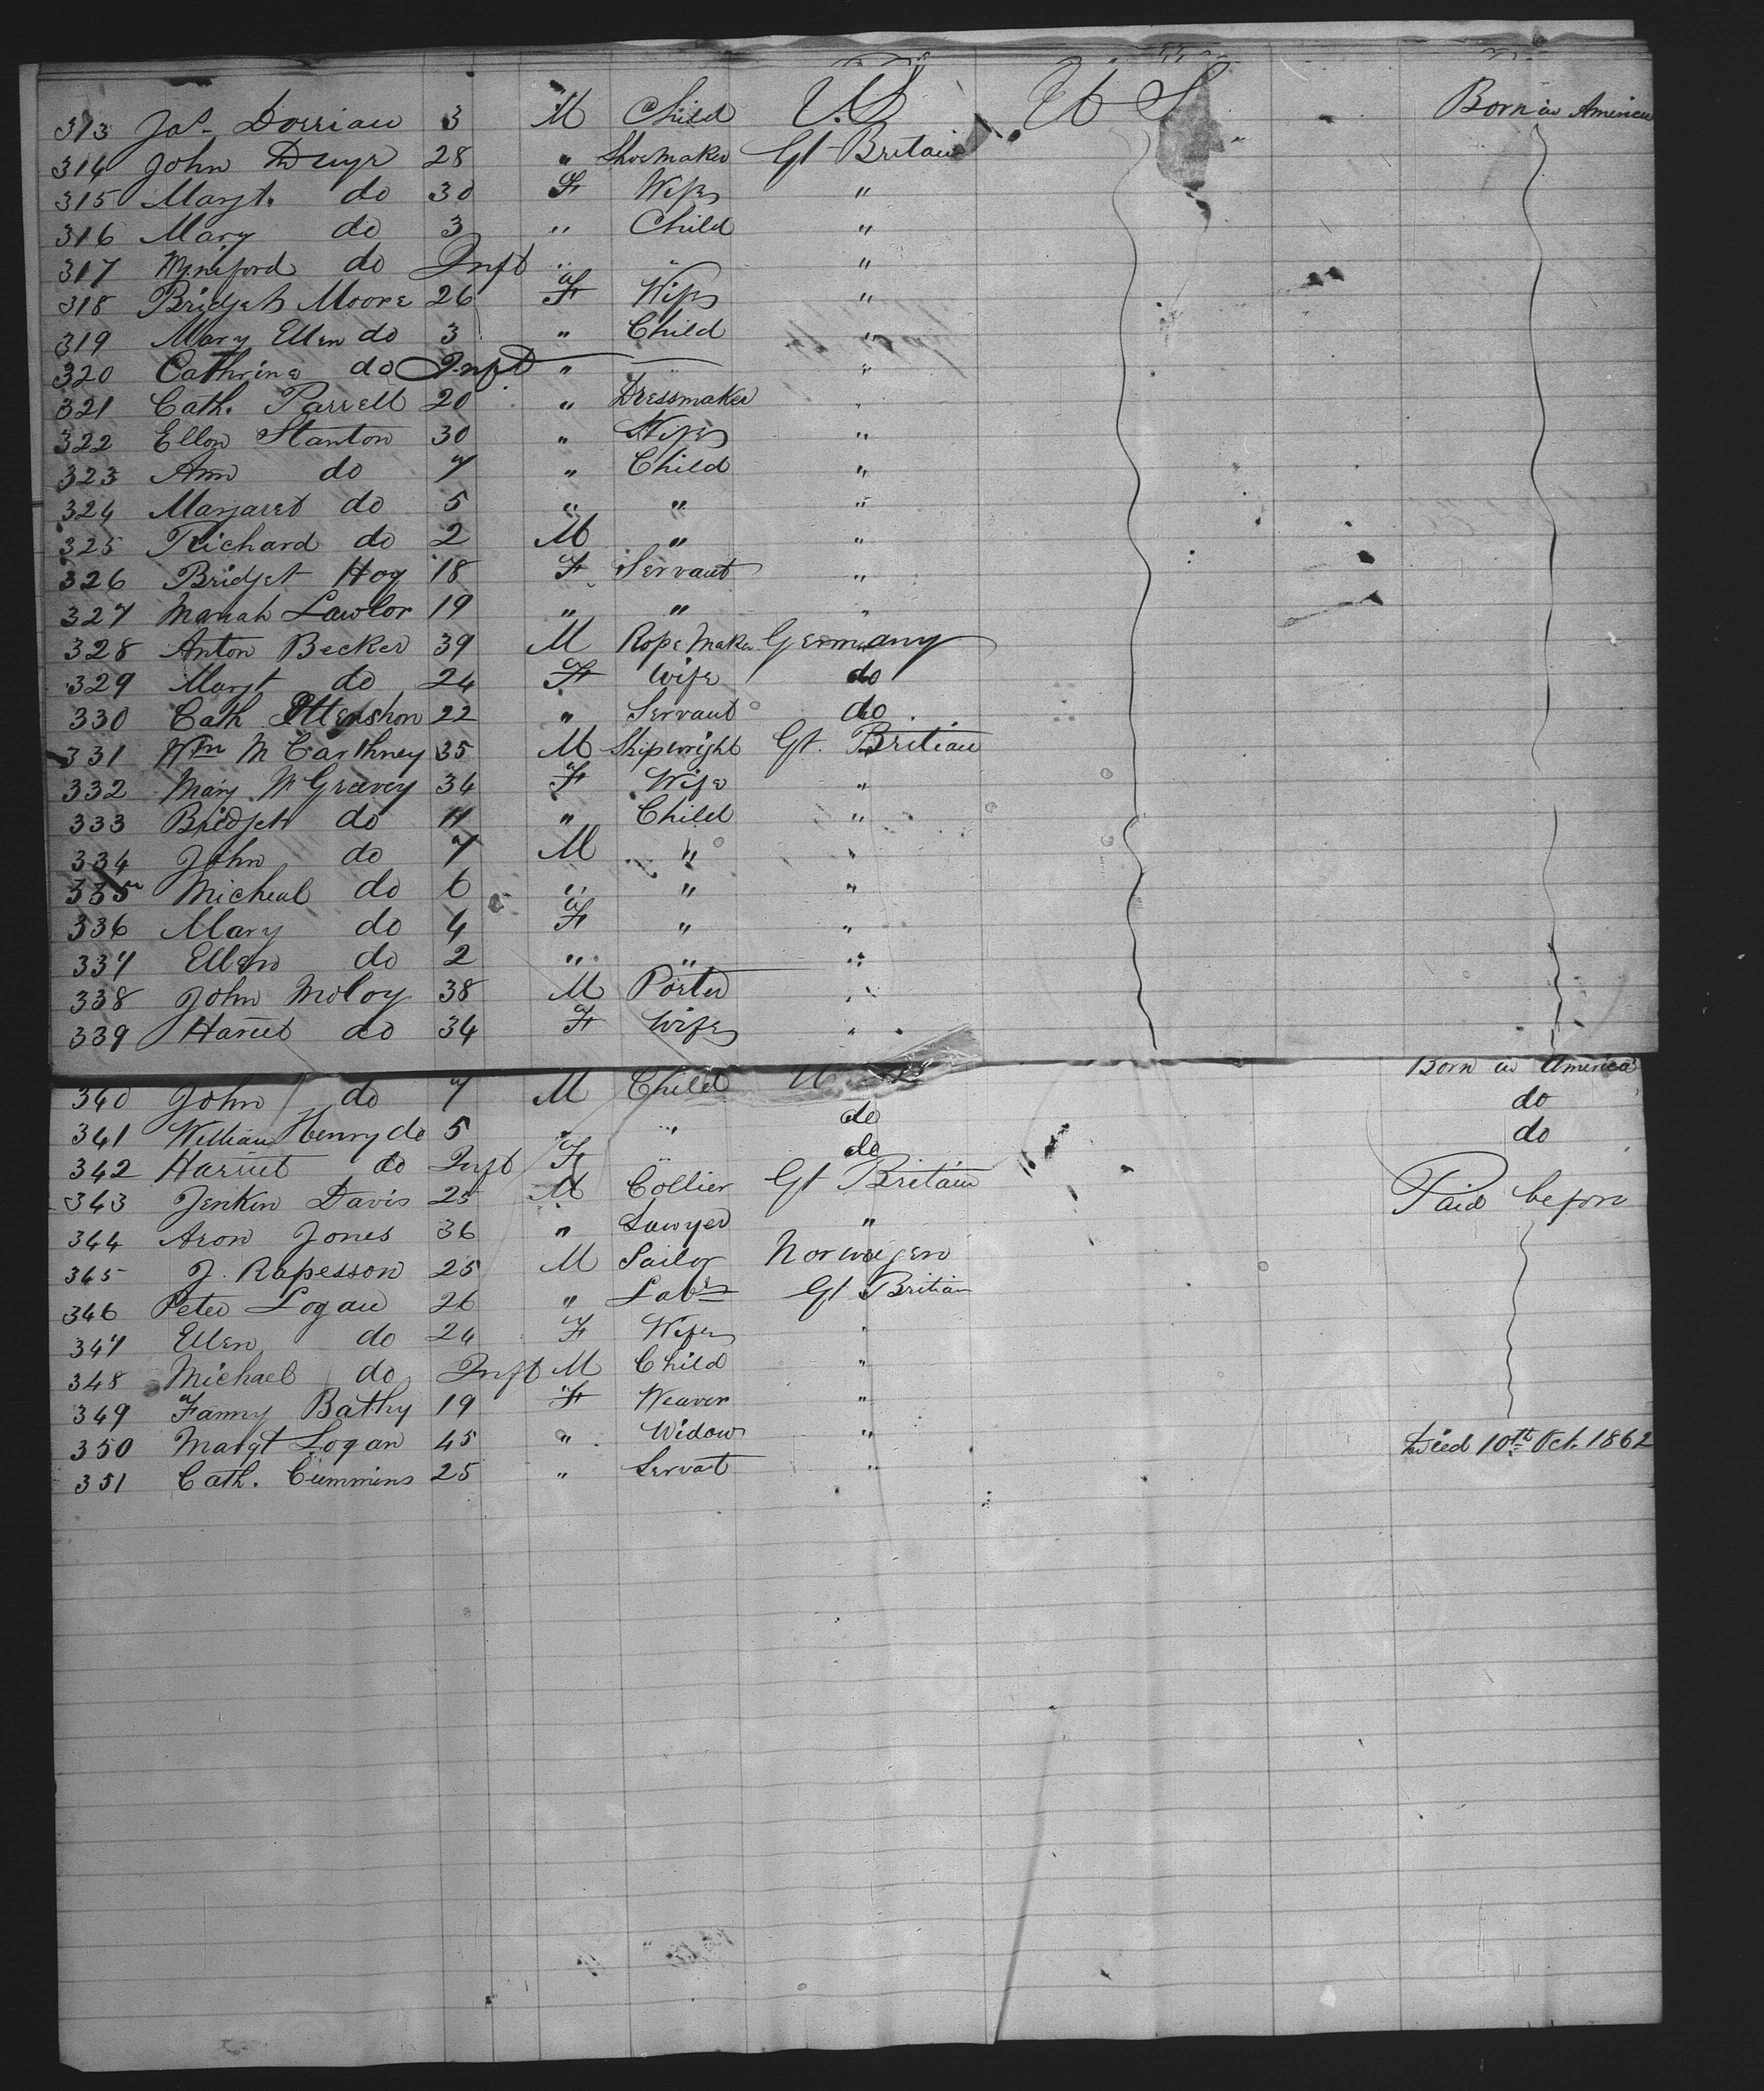 313 Jas. Dorrian 3 M Child U.S U S Born in America
314 John Dwyr 28 " Shoemaker Gt Britain
315 Margt. do 30 F Wife "
316 Mary do 3 " Child "
317 Wyniford do Inft " " "
318 Bridget Moore 26 F Wife "
319 Mary Ellen do 3 " Child "
320 Cathrine do Inft " "
321 Cath. Parrell 20 " Dressmaker "
322 Ellen Stanton 30 " Wife "
323 Ann do 7 " Child "
324 Margaret do 5 " " "
325 Richard do 2 M " "
326 Bridget Hoy 18 F Servant "
327 Mariah Lawlor 19 " " "
328 Anton Becker 39 M Rope Maker Germany
329 Margt do 24 F Wife do
330 Cath 22 " Servant do
331 Wm McCarthney 35 M Shipwright Gt. Britian
332 Mary McGreevey 34 F Wife "
333 Bridget do 11 " Child "
334 John do 7 M " "
335 Micheal do 6 " " "
336 Mary do 4 F " "
337 Ellen do 2 " " "
338 John Moloy 38 M Porter "
339 Harriet do 34 F Wife "
340 John do 7 M Child U S Born in America
341 William Henry do 5 " " do do
342 Harriet do Inft F " do do
343 Jenkin Davis 25 M Collier Gt Britain Paid before
344 Aron Jones 36 " Sawyer "
345 J. Rapesson 25 M Sailor Norwegen
346 Peter Logan 26 " Labr Gt Britian
347 Ellen do 24 F Wife "
348 Michael do Inft M Child "
349 Fanny Bathy 19 F Weaver "
350 Margt Logan 45 " Widow " Died 10th Oct. 1862
351 Cath. Cummins 25 " Servat "